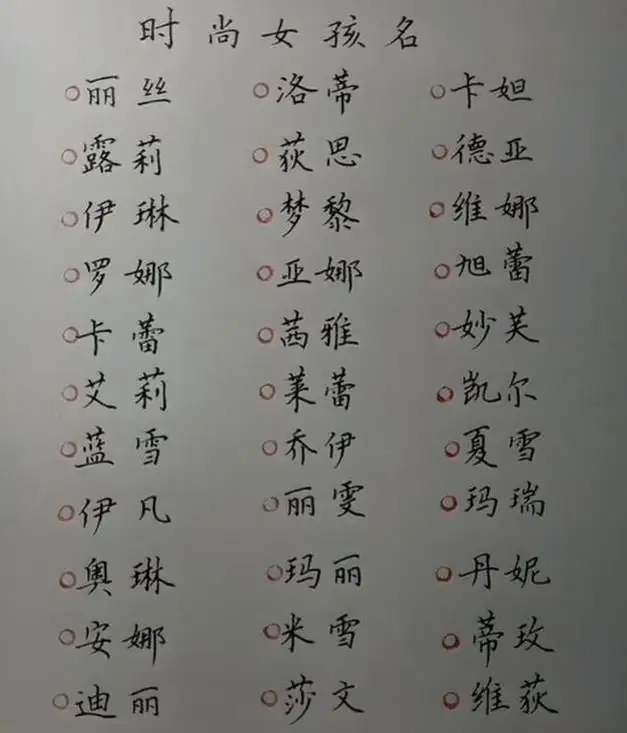 时尚女孩名
○丽丝 ○洛蒂 ○卡妲
○露莉 ○荻思 ○德亚
○伊琳 ○梦黎 ○维娜
○罗娜 ○亚娜 ○旭蕾
○卡蕾 ○茜雅 ○妙芙
○艾莉 ○莱蕾 ○凯尔
○蓝雪 ○乔伊 ○夏雪
○伊凡 ○丽雯 ○玛瑞
○奥琳 ○玛丽 ○丹妮
○安娜 ○米雪 ○蒂玫
○迪丽 ○莎文 ○维荻